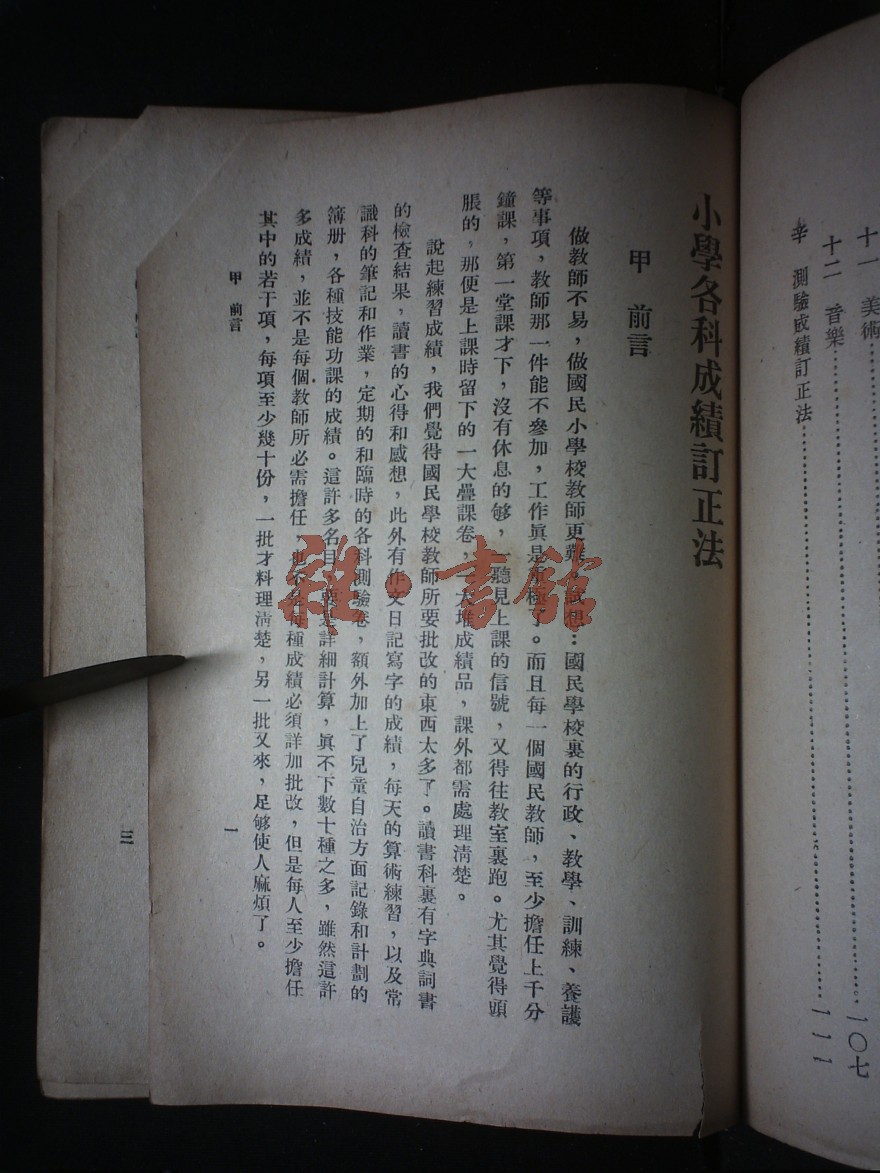 十一 美術
十二 音樂……一〇七
辛 測驗成績訂正法……一一一
小學各科成績訂正法
甲 前言
做教師不易,做國民小學校教師更難。試想:國民學校裏的行政、教學、訓練、養護
等事項,教師那一件能不參加,工作眞是重極了。而且每一個國民教師,至少擔任上千分
鐘課,第一堂課才下,沒有休息的够,一聽見上課的信號,又得往教室裏跑。尤其覺得頭
脹的,那便是上課時留下的一大疊課卷,一大堆成績品,課外都需處理淸楚。
說起練習成績,我們覺得國民學校教師所要批改的東西太多了。讀書科裏有字典詞書
的檢查結果,讀書的心得和感想,此外有作文日記寫字的成績,每天的算術練習,以及常
識科的筆記和作業,定期的和臨時的各科測驗卷,額外加上了兒童自治方面記錄和計劃的
簿册,各種技能功課的成績。這許多名目,要是詳細計算,眞不下數十種之多,雖然這許
多成績,並不是每個教師所必需擔任 也不是每種成績必須詳加批改,但是每人至少擔任
其中的若干項,每項至少幾十份,一批才料理淸楚,另一批又來,足够使人麻煩了。
甲 前言
一
三
雜·書館